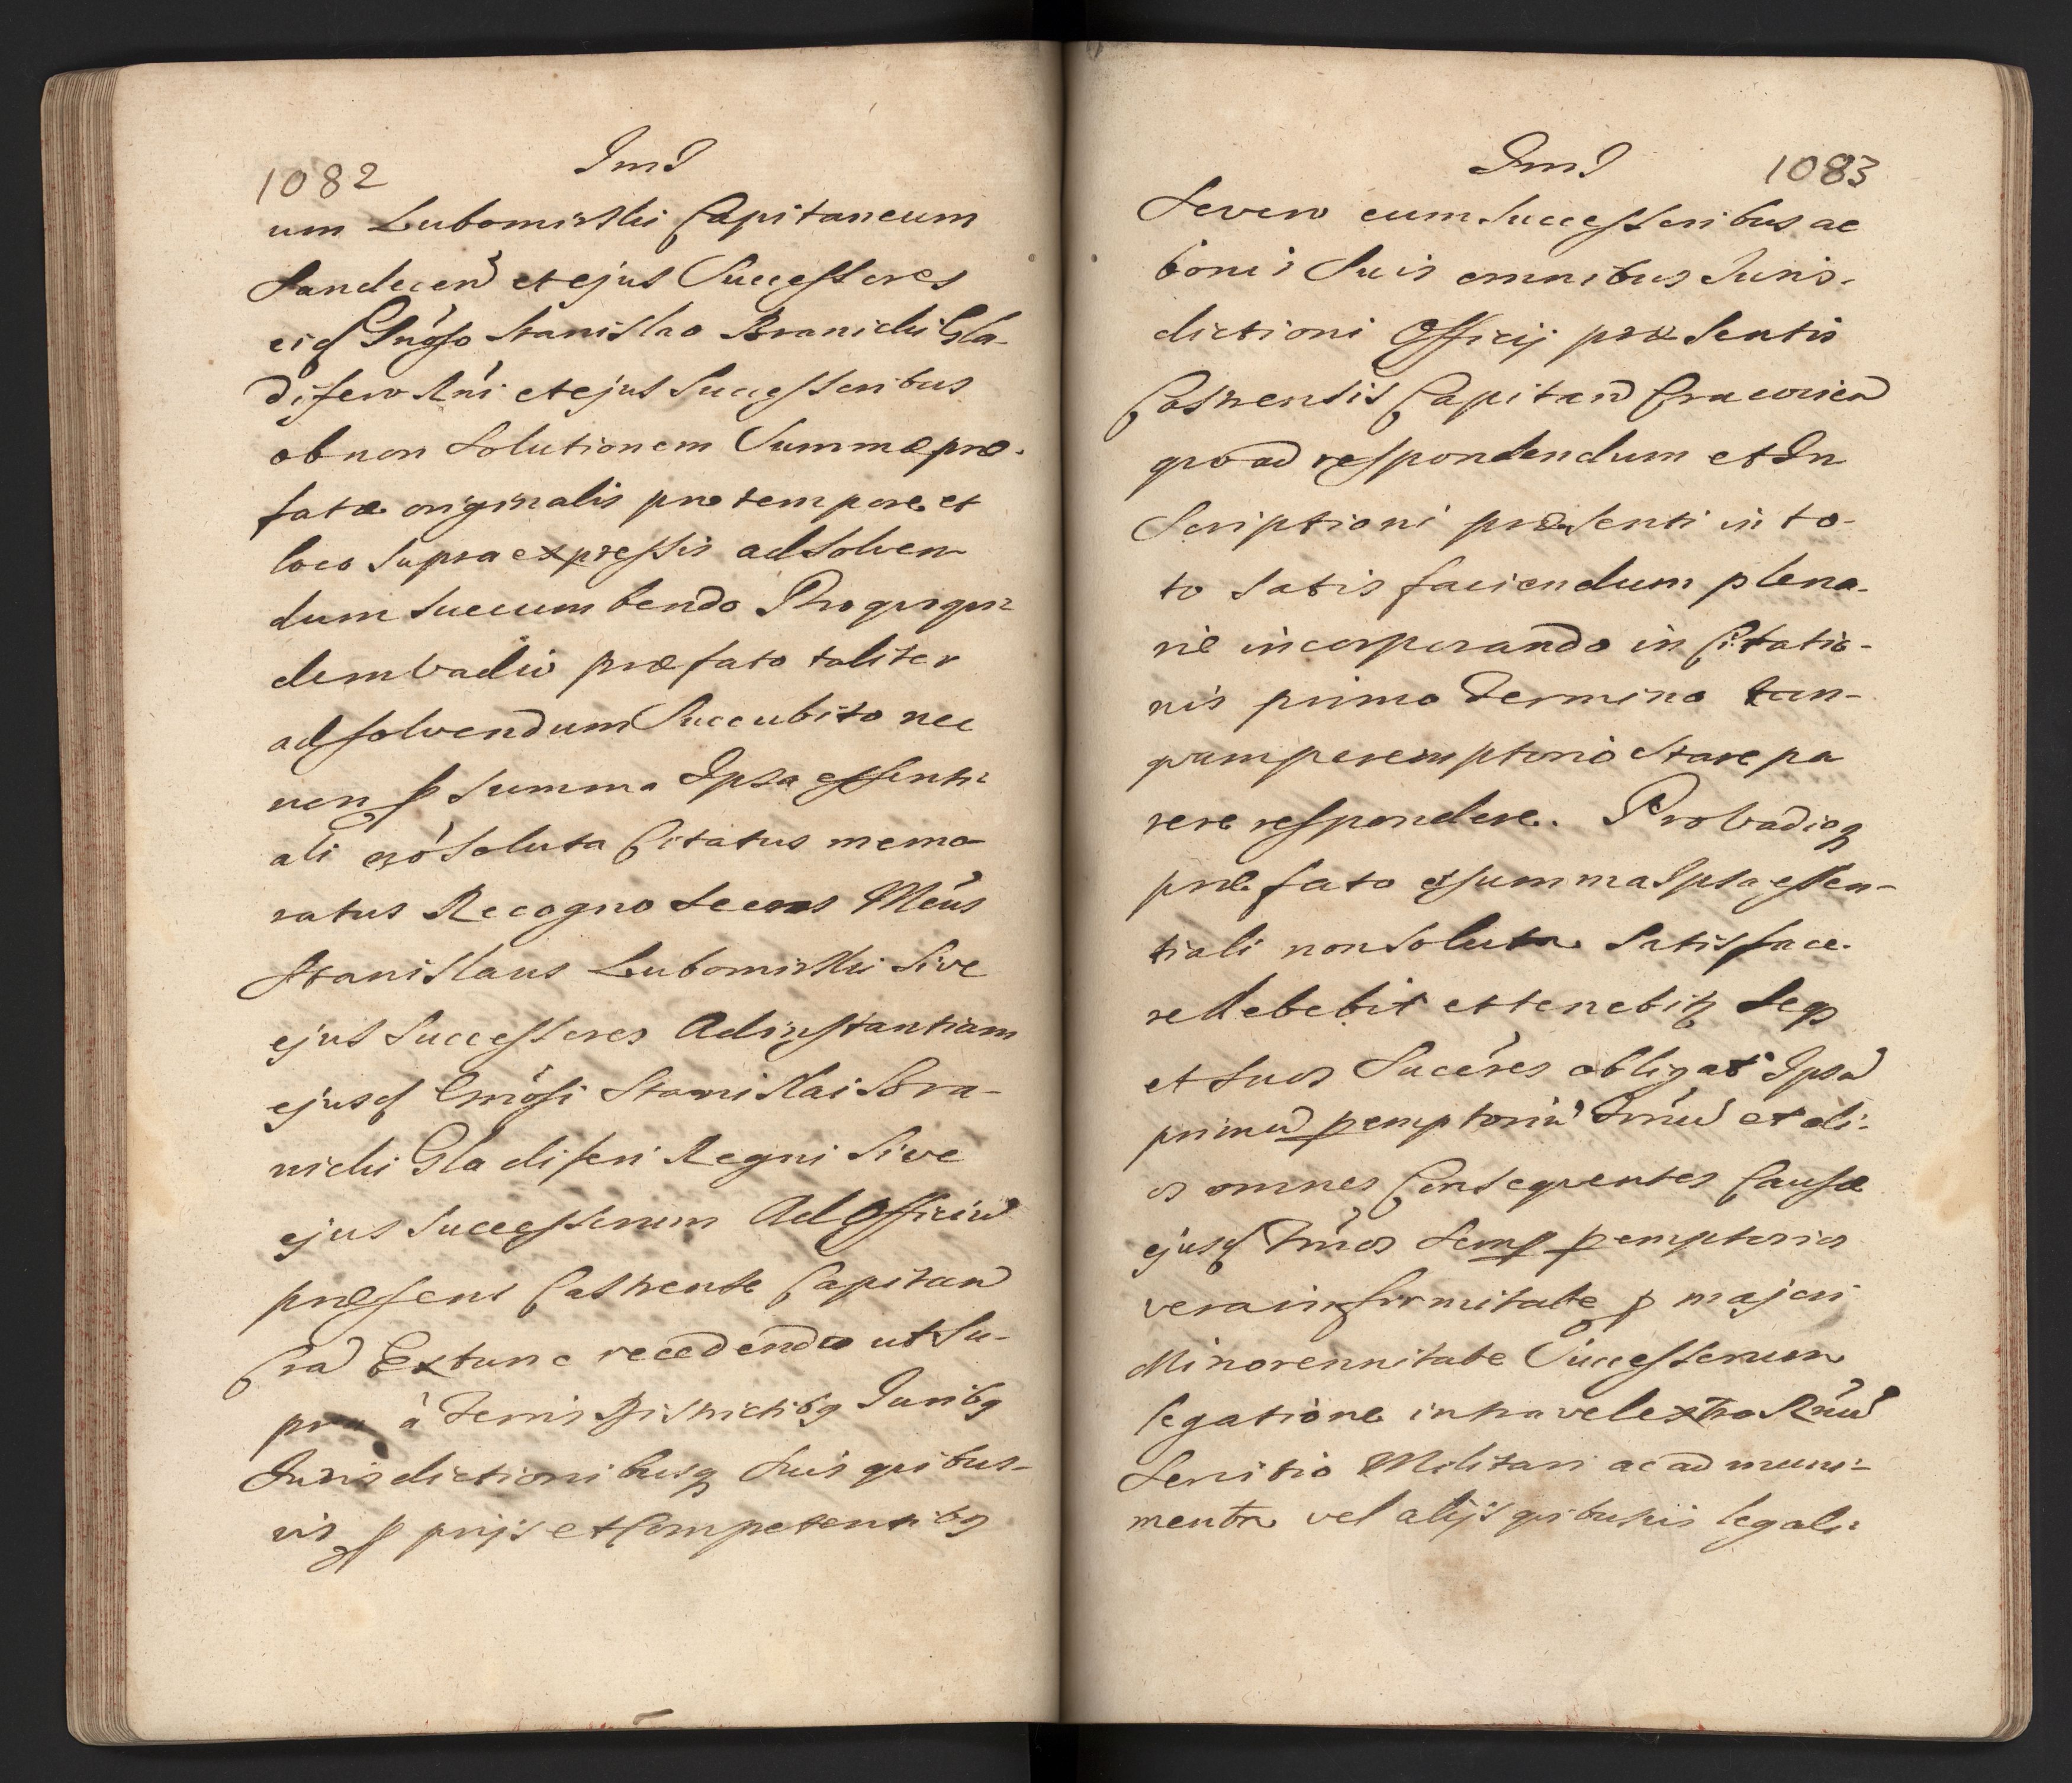 1082
ImJ
um Lubomirski Capitaneum
Sandecen et ejus Successores
eid Gńoso Stanislao Branicki Gla-
difero Rni et ejus Successoribus
ob non Solutionem Summæ præ-
fatæ originalis pro tempore et
loco supra expressis ad solven-
dum succumbendo Pro quoqui-
dem vadio præfato taliter
ad solvendum Succubito nec
non p Summa Ipsa essenti-
ali nó soluta Citatus memo-
ratus Recogno Meus
Stanislaus Lubomirski Sive
ejus Successores Ad instantiam
ejusd Gnósi Stanislai Bra-
nicki Gladiferi Regni Sive
ejus Successorum Ad Officiu
præsens Castrense Capitan
Cra Extunc recedendo ut Su-
pra à Terris Districtibq Juribq
Jurisdictionibusq suis quibus-
vis pprijs et Competentibq
ImJ
1083
Severo cum Successoribus ac
bonis Suis omnibus Juris-
dictioni Officij præsentis
Castrensis Capitan Cracovien
quoad respondendum et In
Scriptioni præsenti in to-
to satis faciendum plena-
rie incorporando in Citatio-
nis primo Termino tan-
quam peremptorio Stare pa
rere respondere. Pro Vadioq
præfato et summa Ipsa essen-
tiali non soluta Satisface-
re debebit et tenebitq Seqs
et suos Sucéres obligat Ipsu
primu pemptoriu Tmnu et ali-
os omnes Consequentes Causæ
ejusd Tmnos Semp pemptorios
vera infirmitate p majori
Minorennitate Successorum
legatione intra vel extra Rnu
Servitio Militari ac ad muni-
menta vel alijs quibusvis legali-